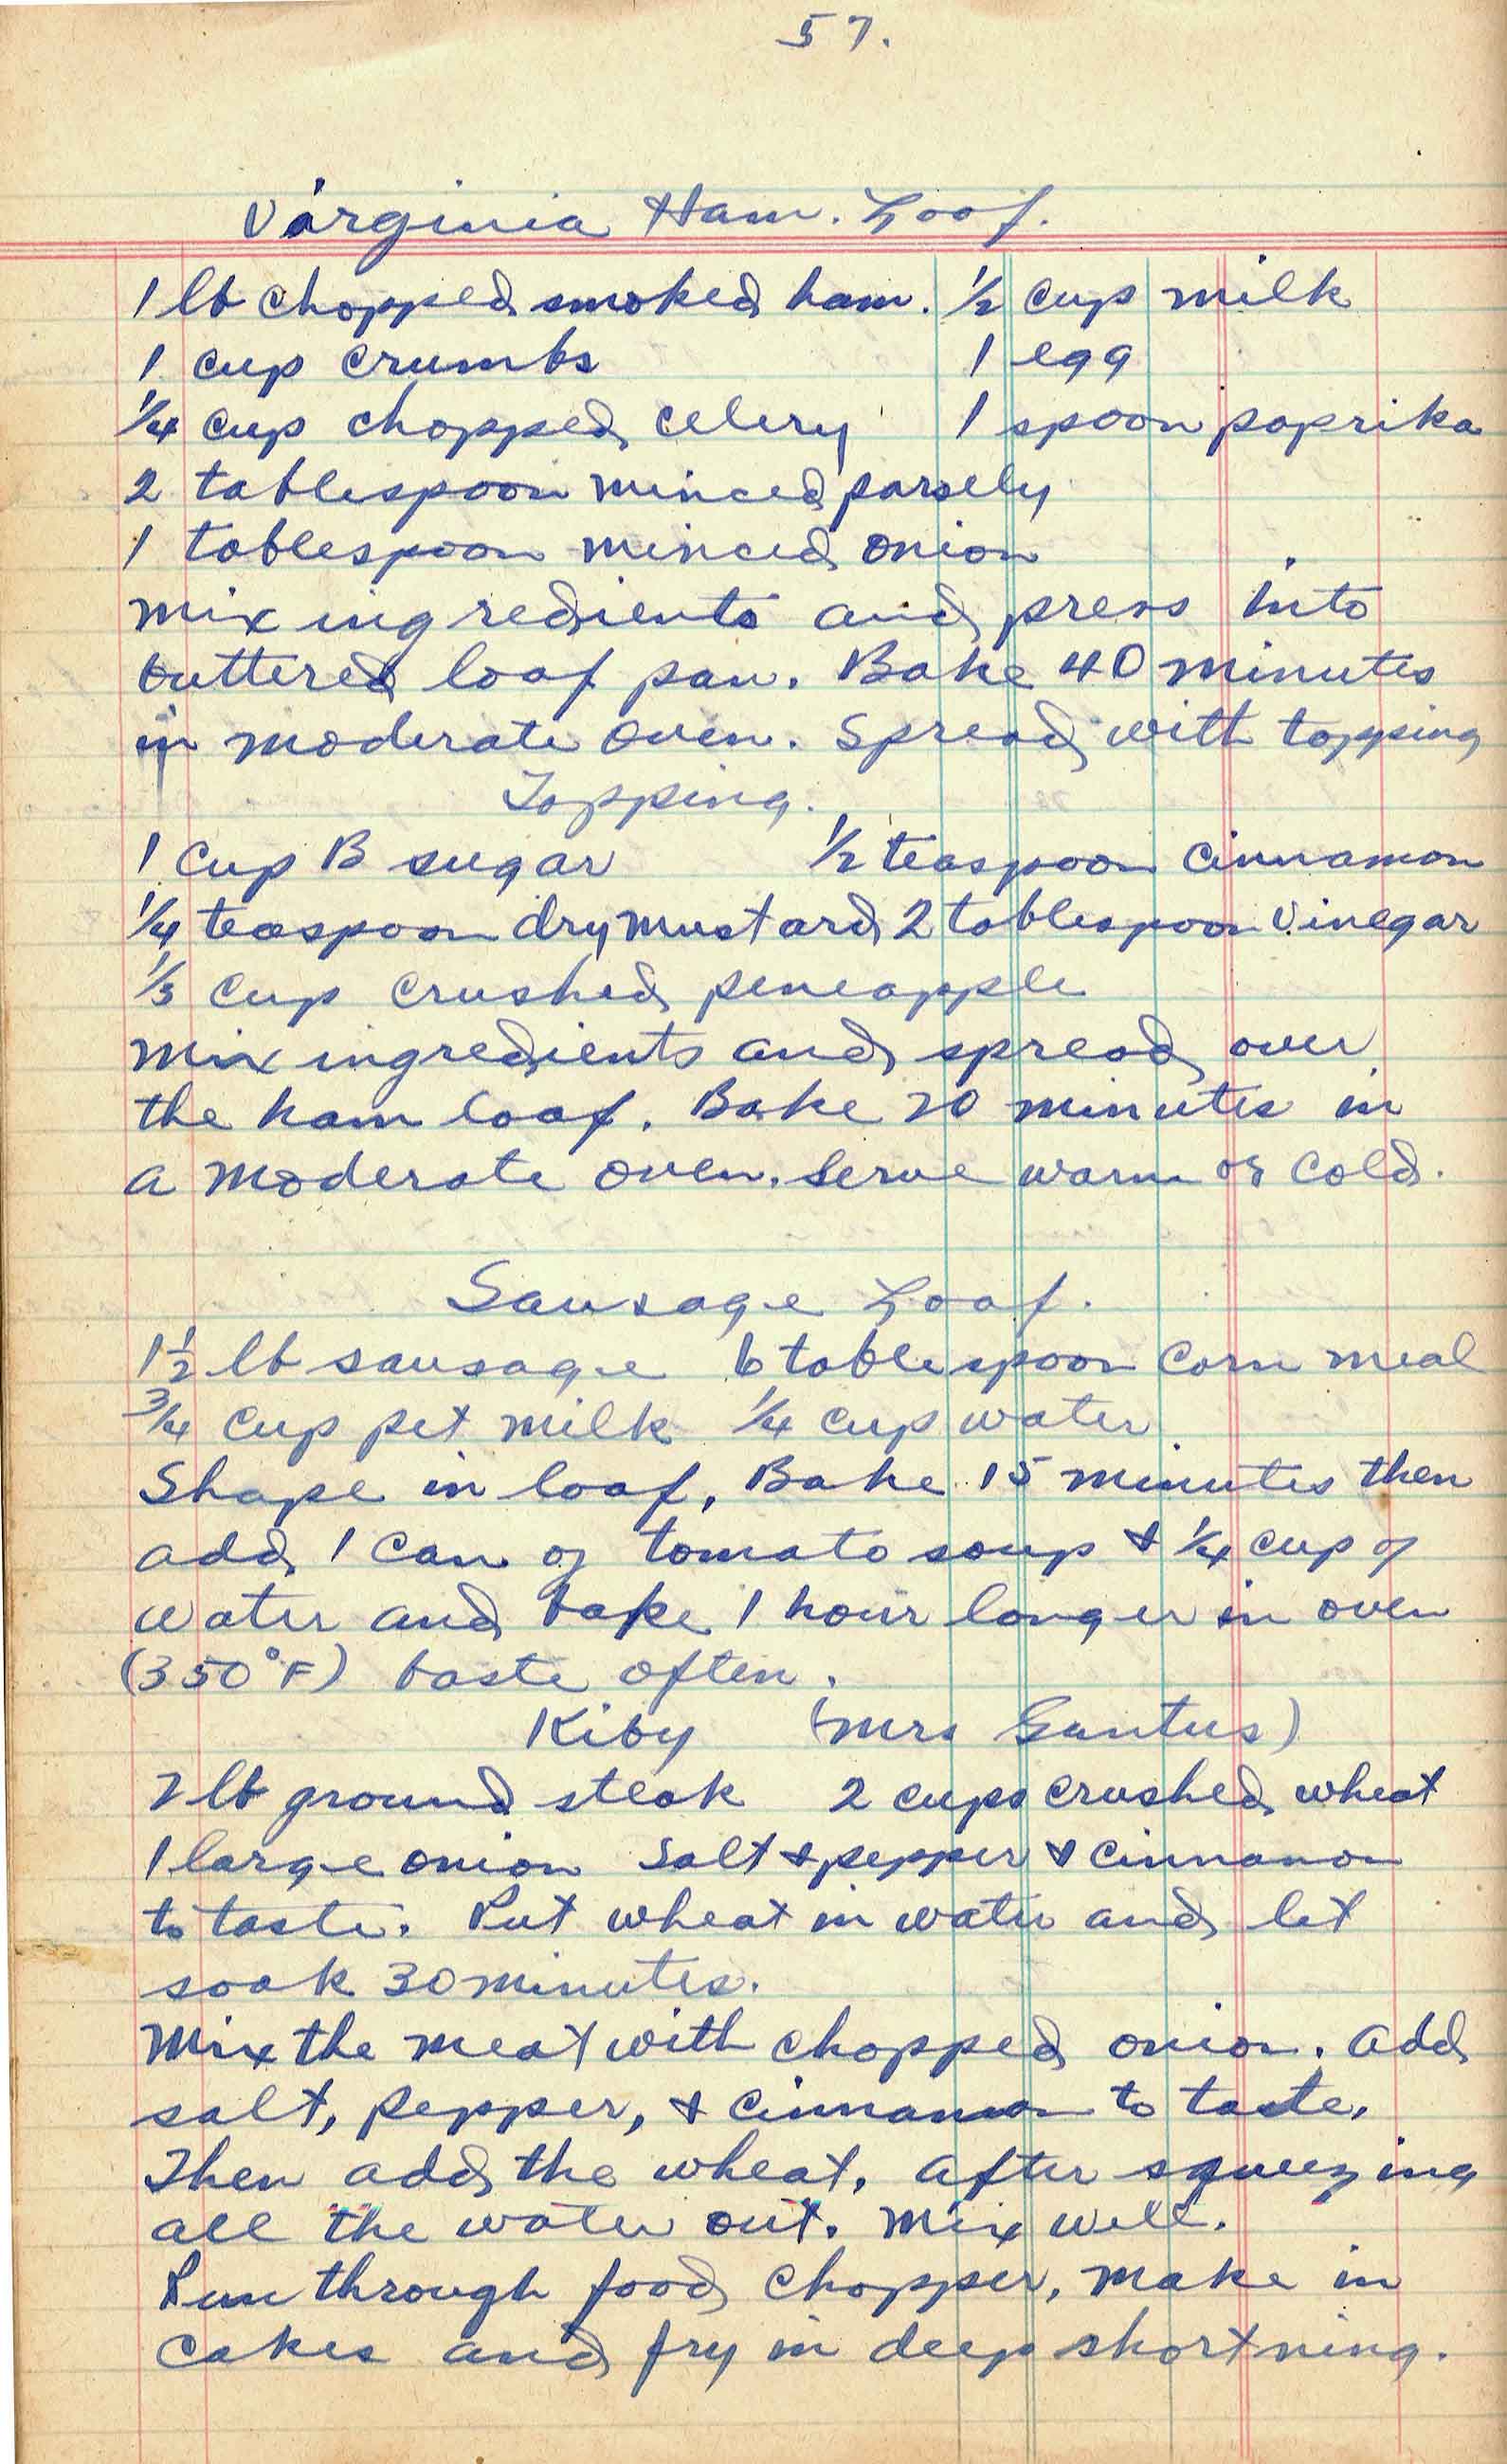 57.
Virginia Ham. Loaf.
1 lb chopped smoked ham. ½ cup milk
1 cup crumbs 1 egg
¼ cup chopped celery 1 spoon paprika
2 tablespoon minced parsely
1 tablespoon minced onion
mix ingredients and press into
buttered loaf pan. Bake 40 minutes
in moderate oven. Spread with topping
Topping.
1 cup B sugar ½ teaspoon cinnamon
¼ teaspoon dry mustard 2 tablespoon vinegar
⅓ cup crushed peneapple
mix ingredients and spread over
the ham loaf. Bake 20 minutes in
a moderate oven. Serve warm or cold.
Sausage Loaf.
1½ lb sausage 6 tablespoon corn meal
¾ cup pet milk ¼ cup water
Shape in loaf. Bake 15 minutes then
add 1 can of tomato soup & ¼ cup of
water and bake 1 hour longer in oven
(350°F) baste often.
Kiby (Mrs Gantus)
2 lb ground steak 2 cups crushed wheat
1 large onion Salt & pepper & cinnamon
to taste. Put wheat in water and let
soak 30 minutes.
Mix the meat with chopped onion. add
salt, pepper, & cinnamon to taste.
Then add the wheat, after squeezing
all the water out. Mix well.
Run through food chopper, make in
cakes and fry in deep shortning.